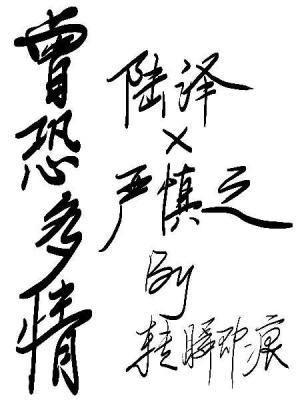 曾恐多情
陆译
×
严慎之
By
转瞬即痕